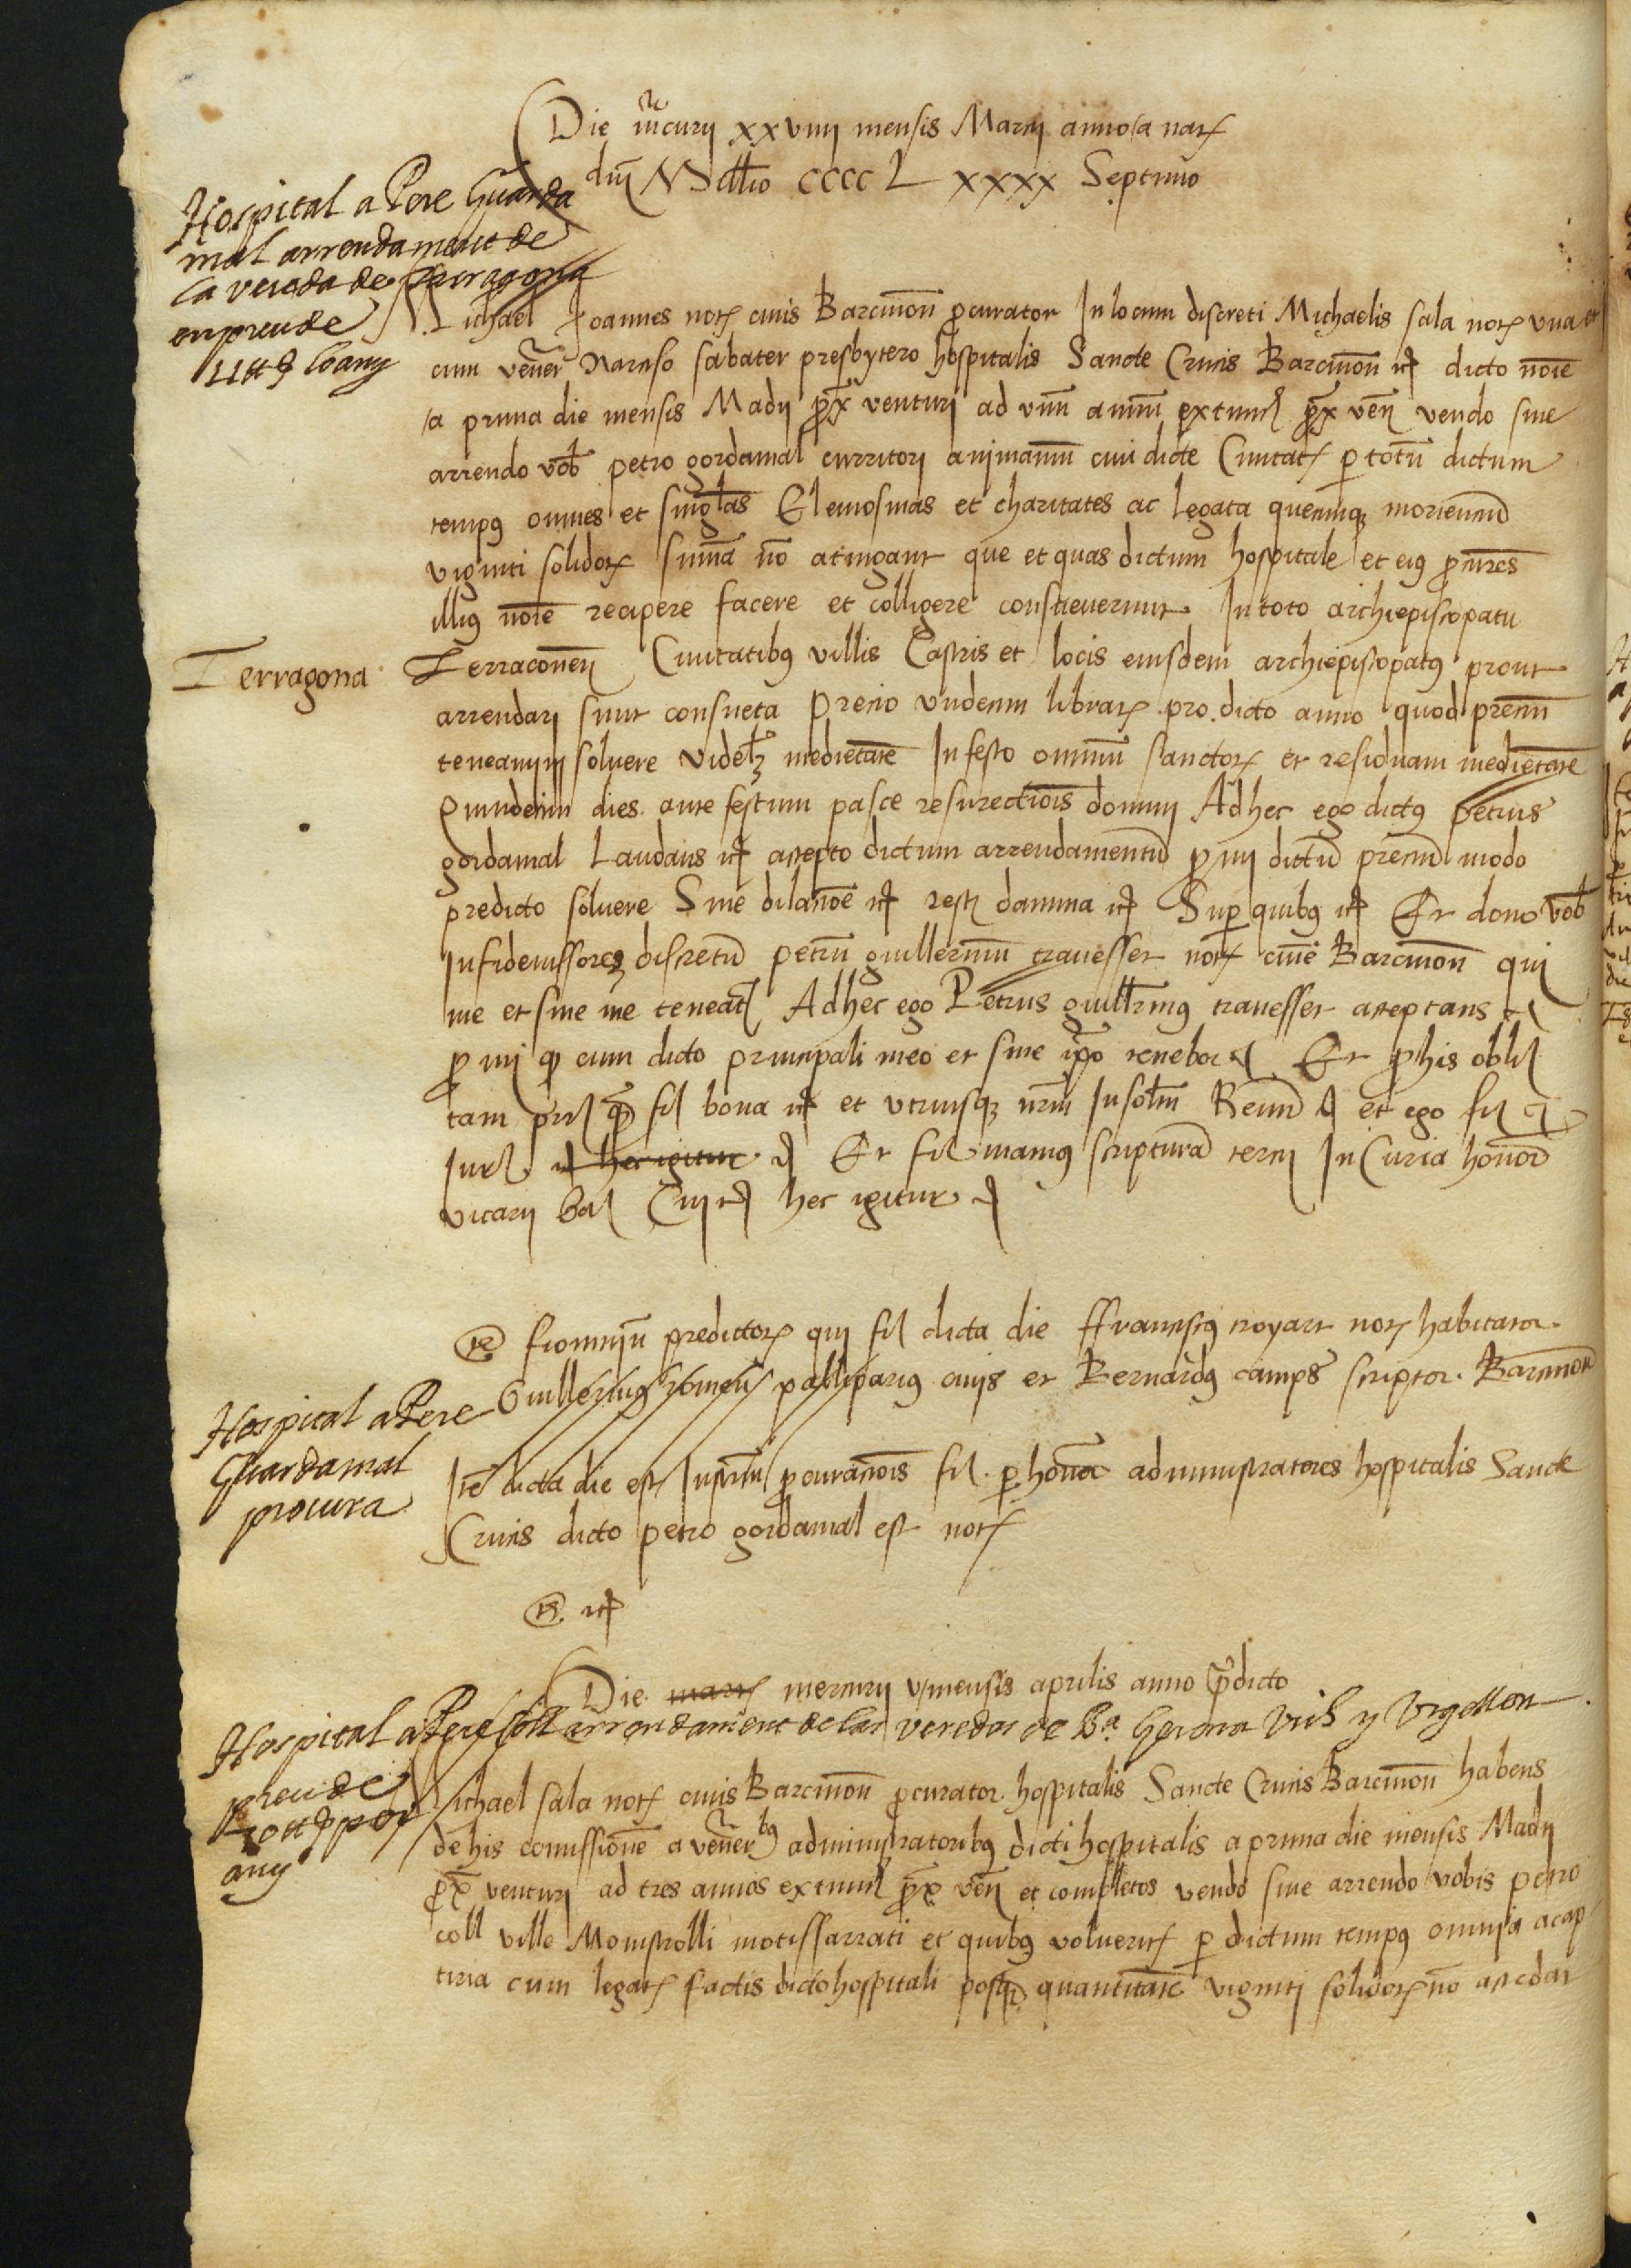 Die mcurij xxviiij mensis Marcij anno a nat
dni Millio CCCC L xxxx Septimo
Hospital a Pere Guarda
mal arrendament de
la vereda de Tarragona
enprende
11 ₶ § lo any
Michael Joannes not civis Barcinon procurator In locum discreti Michaelis sala not una et
cum vener Narciso sabater presbytero hospitalis Sancte Crucis Barcinon et dicto noie
a prima die mensis Madij prox venturi ad unu annu ex tunc prox ven vendo sive
arrendo vob petro gordamal curritori animariu civi dicte Civitat per totu dictum
tempus omnes et singlas Elemosinas et charitates ac legata quecunque morienciu
viginti solidor suma no atingant que et quas dictum hospitale et eius procures
illius noie recipere facere et colligere consueverunt In toto archiepiscopatu
Terragona
Terraconen Civitatibus villis Castris et locis eiusdem archiepiscopatus prout
arrendari sunt consueta Precio undecim librar pro dicto anno quod preciu
teneamini soluere videlz medietate In festo omniu sanctor et residuam medietate
Quindecim dies ante festum pasce resurectiois domini Ad hec ego dictus petrus
gordamal Laudans et accepto dictum arrendamentu promi dictu preciu modo
predicto soluere Sine dilacioe et rest damna et Super quibus et Et dono vob
In fideiussores discretu petru guillermu travesser not cive Barcinon qui
me et sine me teneat Ad hec ego Petrus guillrmus travesser acceptans et
promi q cum dicto principali meo et sine ipo tenebor et Et p his oblis
tam pril q fil bona et et utriusque nrm Insolm Renu et et ego fil et
Jur et hec igitur et Et fil manius scriptura tercij In Curia honor
vicarij bar Cui et hec igitur et
Te firmiu predictor qui fil dicta die ffranciscus noyart not habitator
Guillermus romeu palliparius civis et Bernardus camps scriptor Barcinon
Hospital a Pere
Guardamal
procura
Ite dicta die est Instrm procuraciois fil p honor administratores hospitalis Sancte
Crucis dicto petro gordamal est not
Te et
Die mart mercurij v mensis aprilis anno predicto
Hospital a Pere Coll arrendament de las veredas de Ba Gerona Vich y Urgell on
prende
₶ § per
any
Michael sala not civis Barcinon procurator hospitalis Sancte Crucis Barcinon habens
de his comissione a venerbus administratoribus dicti hospitalis a prima die mensis Madij
prox venturi ad tres annos ex tunc prox ven et completos vendo sive arrendo vobis petro
coll ville Monistrolli motissarrati et quibus volueritis per dictum tempus omnia acap
tiria cum legat factis dicto hospitali posque quantitate viginti solidor no accedat